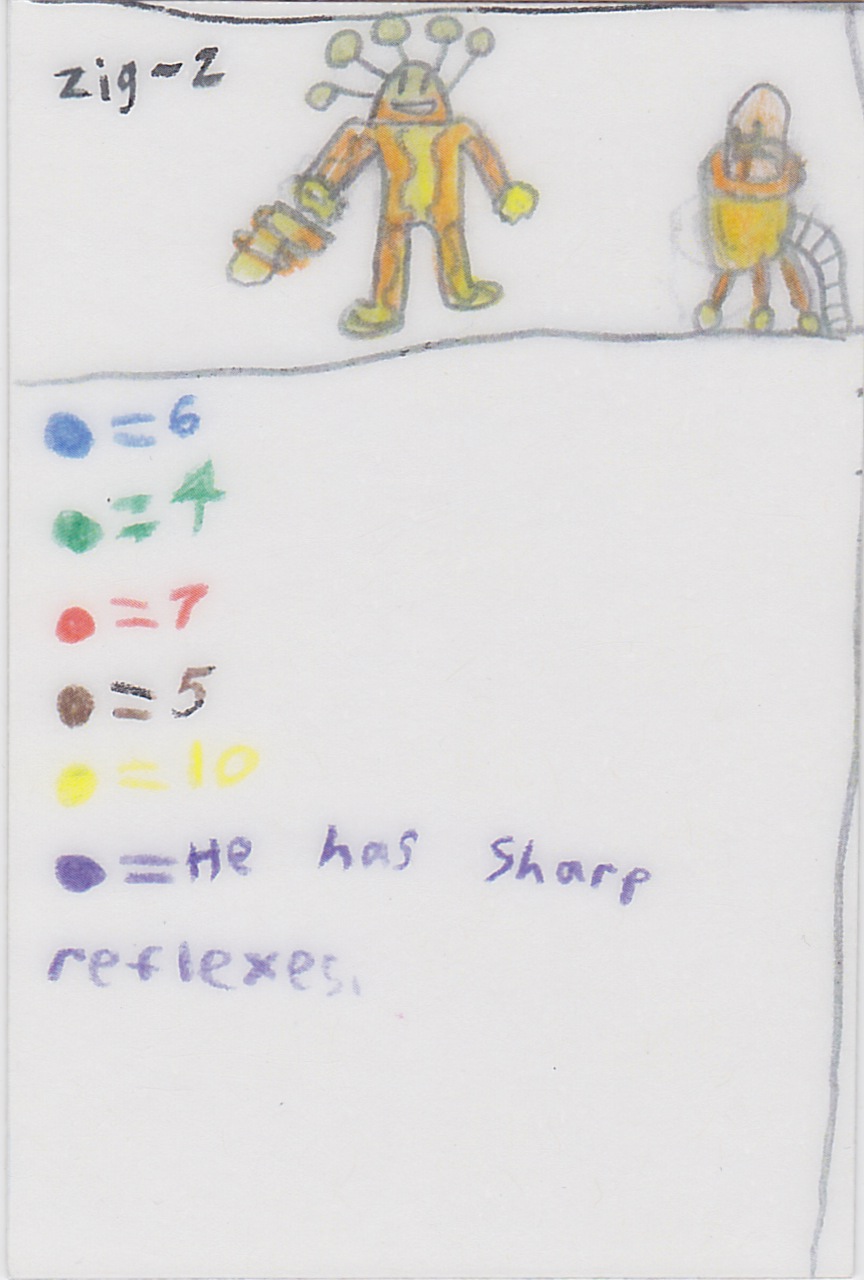 zig-2
= 6
= 4
= 7
= 5
= 10
= He has sharp
reflexes.